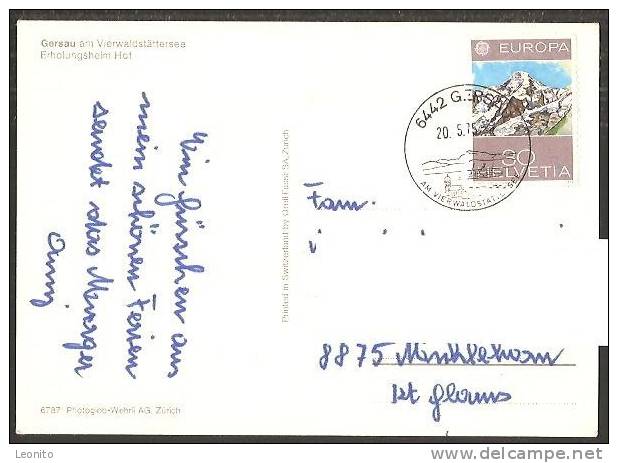 Gersau am Vierwaldstättersee
Erholungsheim Hof
EUROPA
80
HELVETIA
6442 GERSAU
20. 5.75
AM VIERWALDSTÄTT. SEE
Ein Grüsschen aus
mein schönen Ferien
sendet das
Anny
Printed in Switzerland by Orell Füssli AG, Zürich
Fam.
8875 Mühlehorn
Kt Glarus
6787 Photoglob-Wehrli AG, Zürich
www.delcampe.net